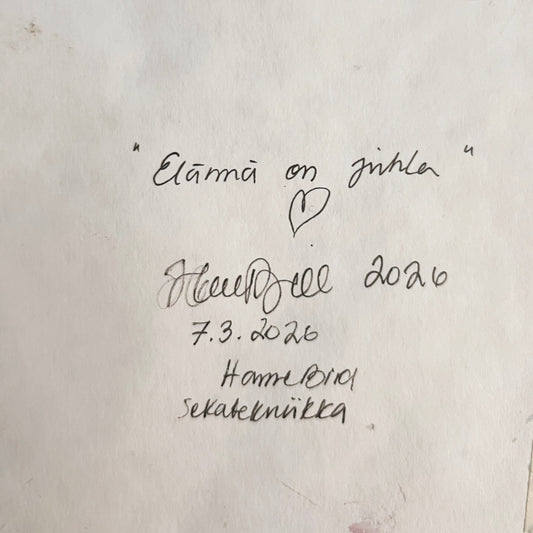 "Elämä on juhla"
2026
7.3.2026
HanneBird
sekatekniikka